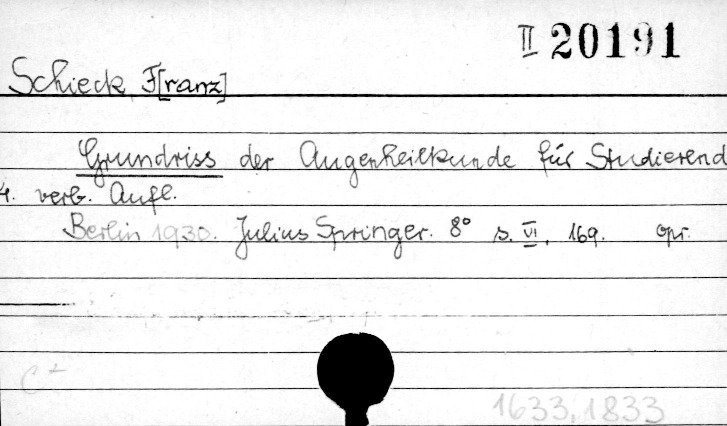 II 20191
Schieck, F[ranz]
Grundriss der Augenheilkunde für Studierend
4. verb. Aufl.
Berlin 1930. Julius Springer. 8° s. VI, 169. opr.
C
1633, 1833